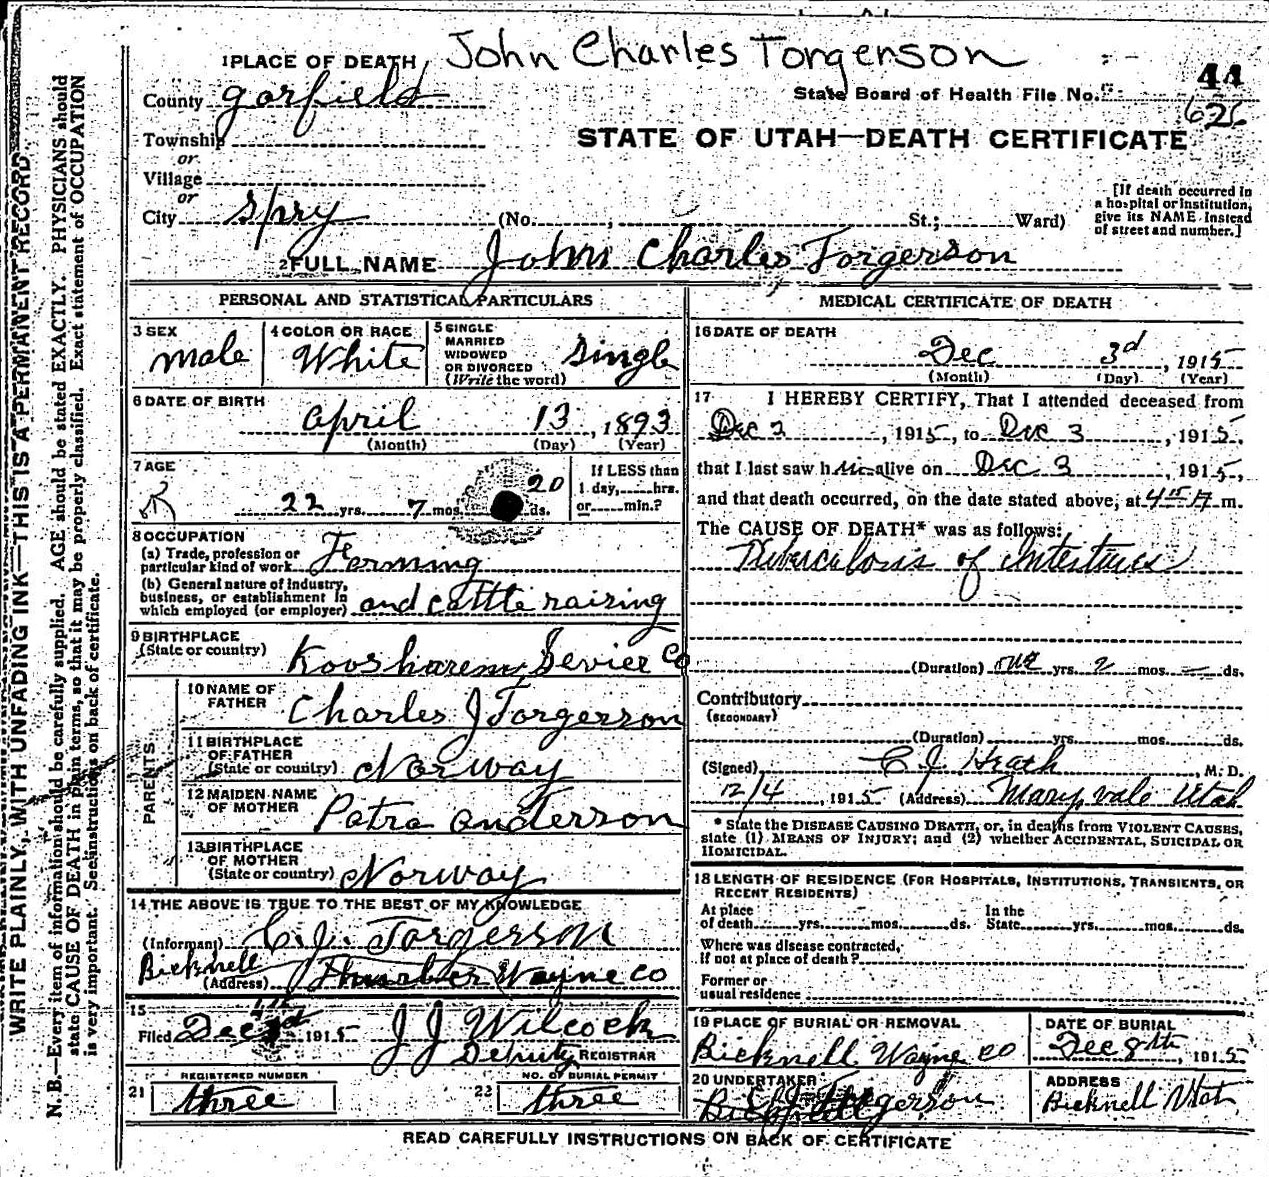 John Charles Torgerson
1 PLACE OF DEATH
44
County Garfield
State Board of Health File No.
626
Township
STATE OF UTAH—DEATH CERTIFICATE
or
Village
or
City Spry (No. , St.; Ward)
[If death occurred in
a hospital or institution,
give its NAME instead
of street and number.]
2 FULL NAME John Charles Torgerson
PERSONAL AND STATISTICAL PARTICULARS
3 SEX
male
4 COLOR OR RACE
White
5 SINGLE
MARRIED
WIDOWED
OR DIVORCED
(Write the word)
Single
6 DATE OF BIRTH
April 13, 1893
(Month) (Day) (Year)
7 AGE
22 yrs. 7 mos. 20 ds.
If LESS than
1 day, hrs.
or min.?
8 OCCUPATION
(a) Trade, profession or
particular kind of work Farming
(b) General nature of industry,
business, or establishment in
which employed (or employer) and cattle raising
9 BIRTHPLACE
(State or country) Koosharem, Sevier Co
PARENTS
10 NAME OF
FATHER Charles J Torgerson
11 BIRTHPLACE
OF FATHER
(State or country) Norway
12 MAIDEN NAME
OF MOTHER Patra Anderson
13 BIRTHPLACE
OF MOTHER
(State or country) Norway
14 THE ABOVE IS TRUE TO THE BEST OF MY KNOWLEDGE
(Informant) C. J. Torgerson
Bicknell
(Address) Thurber Wayne Co
15
Filed Dec 1915 J J Wilcock
Deputy REGISTRAR
21 REGISTERED NUMBER
three
22 NO. OF BURIAL PERMIT
three
MEDICAL CERTIFICATE OF DEATH
16 DATE OF DEATH
Dec 3d, 1915
(Month) (Day) (Year)
17 I HEREBY CERTIFY, That I attended deceased from
Dec 2, 1915, to Dec 3, 1915,
that I last saw him alive on Dec 3, 1915,
and that death occurred, on the date stated above, at 4 15 A m.
The CAUSE OF DEATH* was as follows:
Tuberculosis of Intestines
(Duration) one yrs. 2 mos. — ds.
Contributory
(SECONDARY)
(Duration) yrs. mos. ds.
(Signed) C J Heath, M. D.
12/4, 1915 (Address) Marysvale Utah
* State the DISEASE CAUSING DEATH, or, in deaths from VIOLENT CAUSES,
state (1) MEANS OF INJURY; and (2) whether ACCIDENTAL, SUICIDAL OR
HOMICIDAL.
18 LENGTH OF RESIDENCE (FOR HOSPITALS, INSTITUTIONS, TRANSIENTS, OR
RECENT RESIDENTS)
At place
of death yrs. mos. ds.
In the
State yrs. mos. ds.
Where was disease contracted,
if not at place of death?
Former or
usual residence
19 PLACE OF BURIAL OR REMOVAL
Bicknell Wayne Co
DATE OF BURIAL
Dec 8th, 1915
20 UNDERTAKER
Torgerson
ADDRESS
Bicknell Utah
READ CAREFULLY INSTRUCTIONS ON BACK OF CERTIFICATE
WRITE PLAINLY, WITH UNFADING INK—THIS IS A PERMANENT RECORD
N. B.—Every item of information should be carefully supplied. AGE should be stated EXACTLY. PHYSICIANS should
state CAUSE OF DEATH in plain terms, so that it may be properly classified. Exact statement of OCCUPATION
is very important. See instructions on back of certificate.